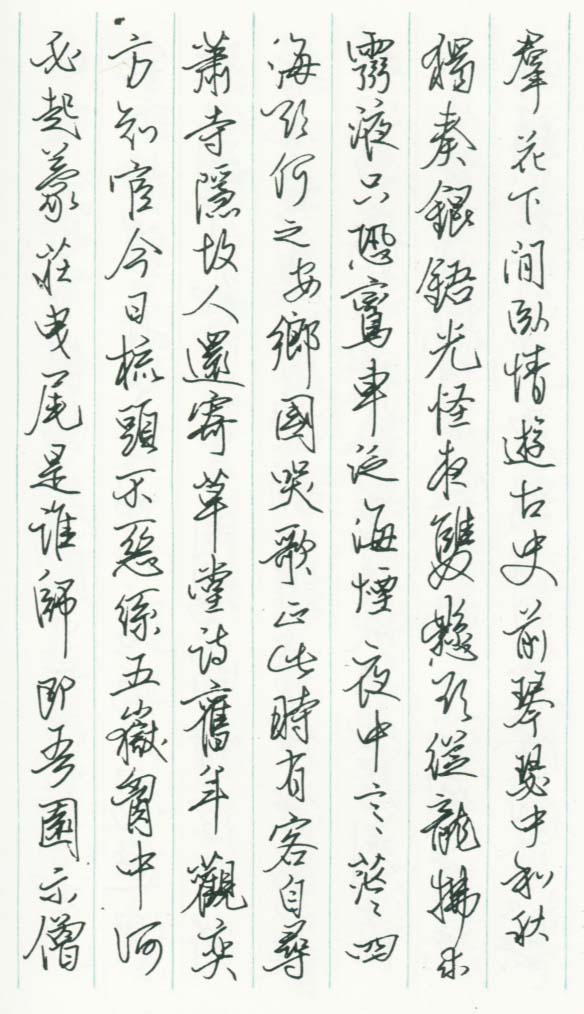 羣花下閒臥情遊古史前琴瑟中和秋
獨奏錕鋙光怪夜雙懸欲從龍拂
液只恐鸞車泛海煙夜中言茫四
海欲何之安鄉國哭歌正此時有客自尋
蕭寺隱故人還寄草堂詩舊年觀奕
方知官今日梳頭不惡絲五嶽胸中河
必起蒙莊曳尾是誰師即吾園示僧